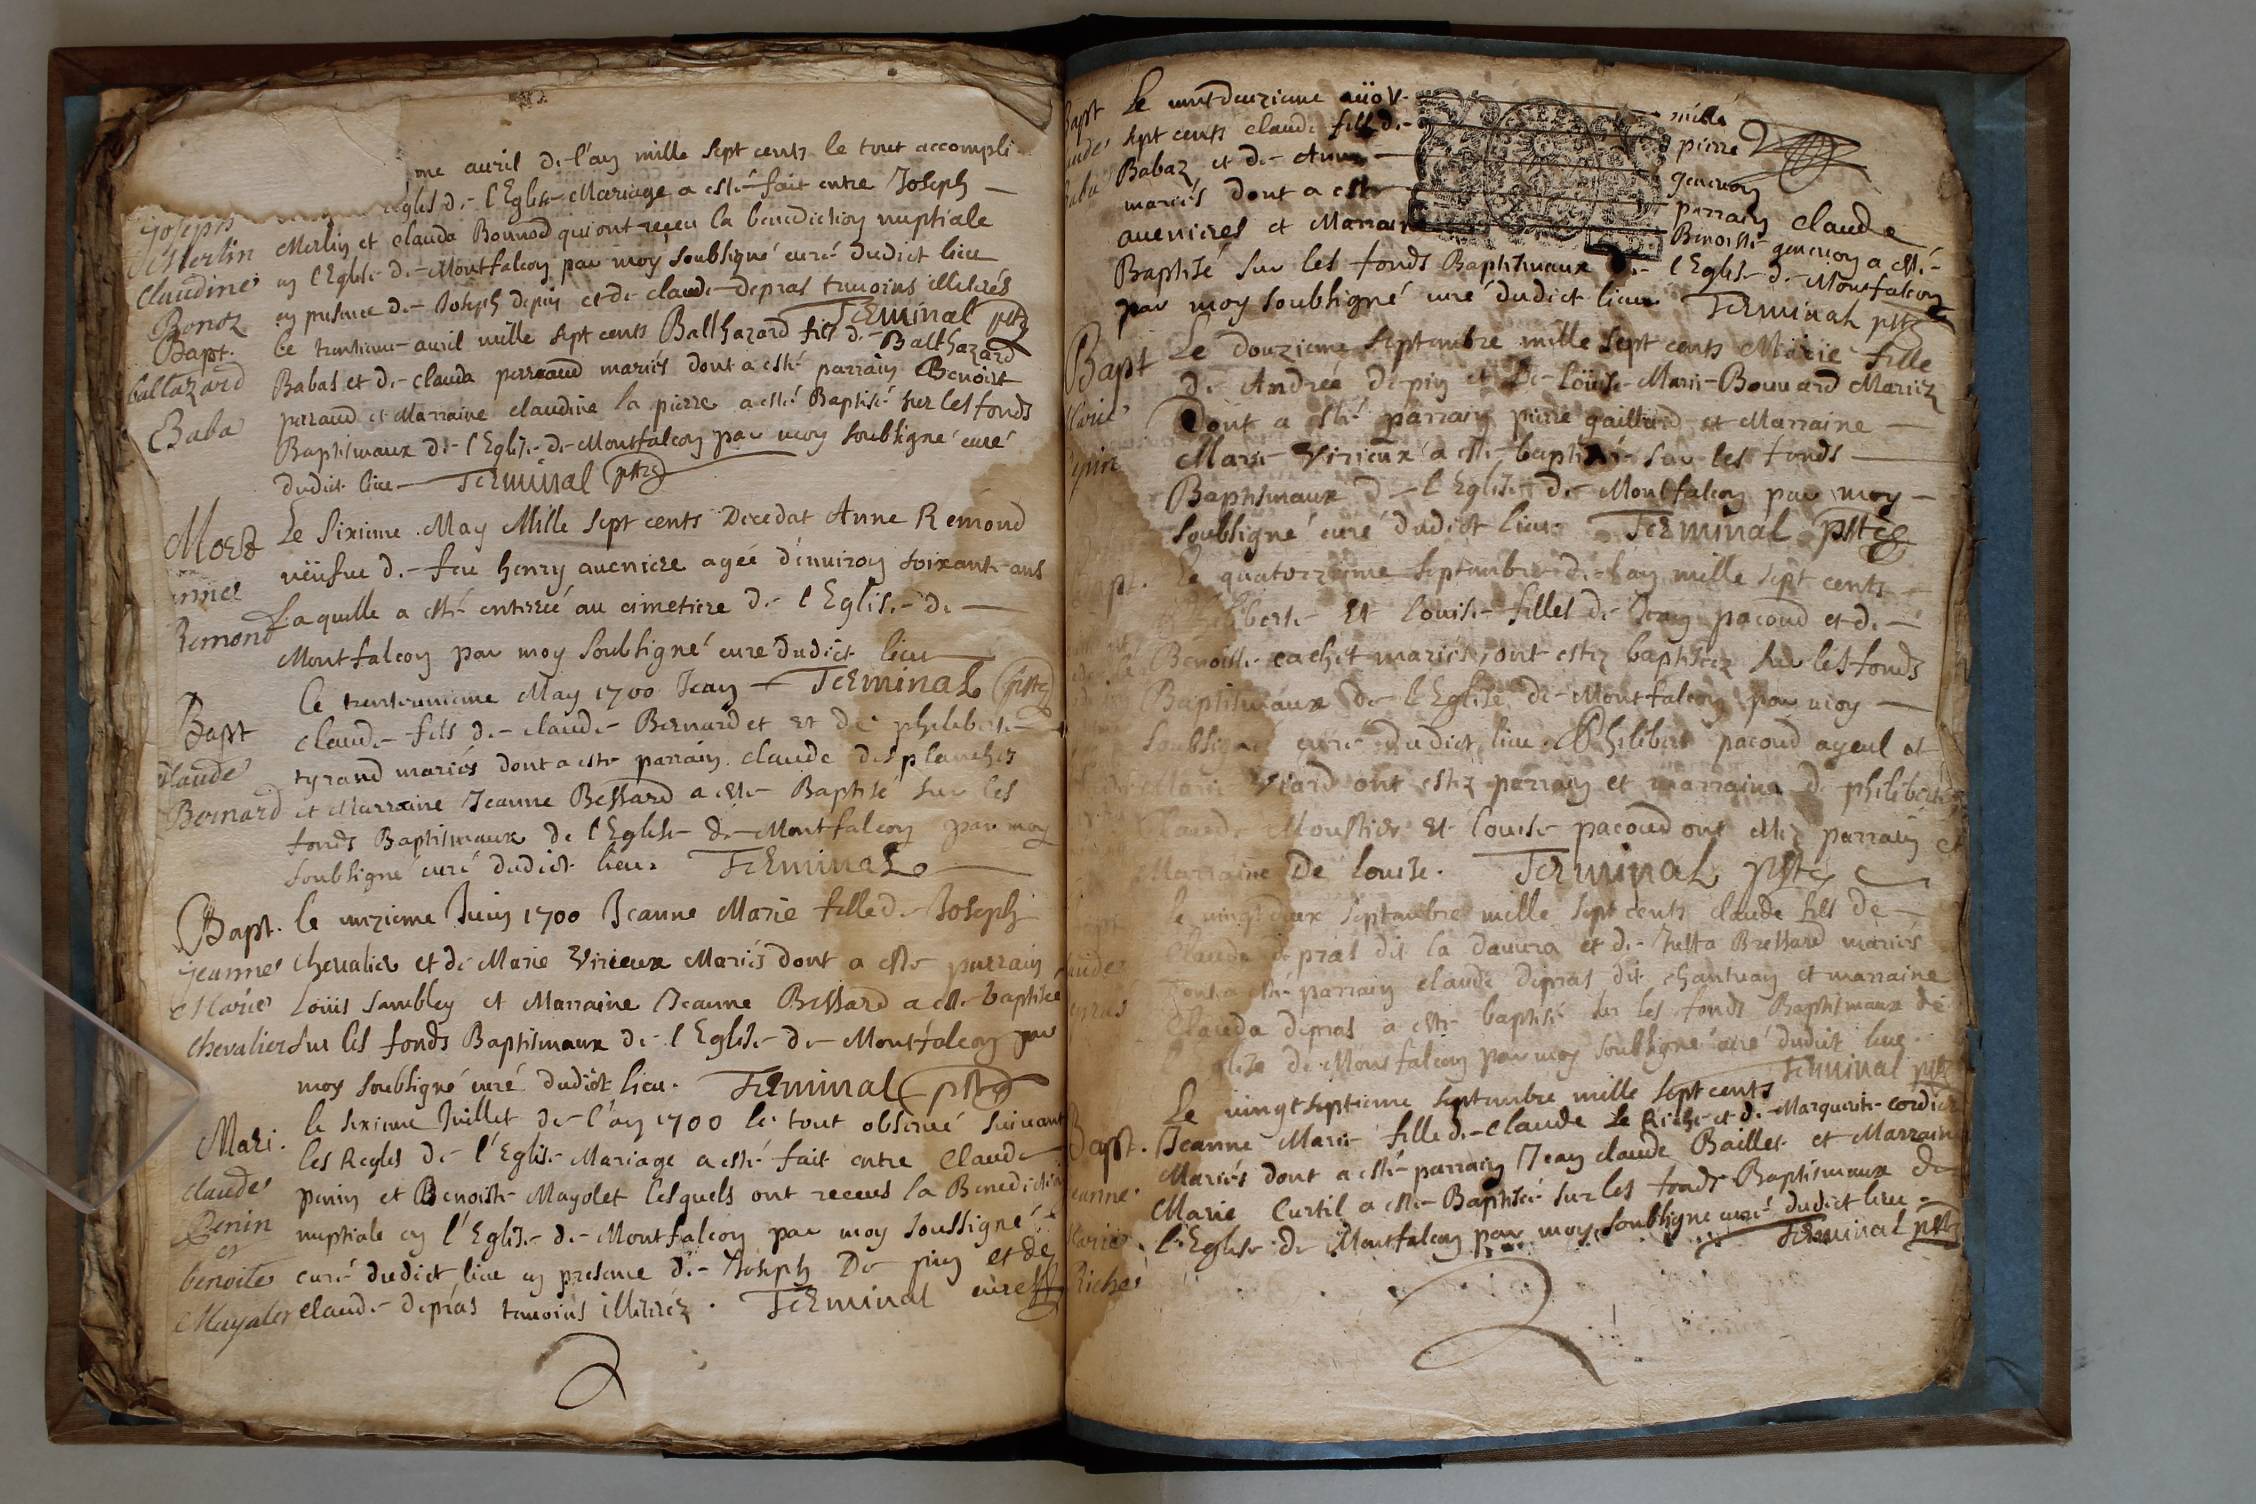 me auril de l'an mille sept cents le tout accompli
regles de l'Eglise Mariage a esté fait entre Joseph
Joseph
Merlin
Merlin et Clauda Bonnod qui ont reçeu la benediction nuptiale
Claudine
en l'Eglise de Montfalcon par moy soubsigné curé dudict lieu
Bonoz
en presence de Joseph depin et de claude depras tmoins illiterés
Terminal pstre
Bapt.
baltazard
Baba
Le trentieme auril mille sept cents Balthazard fils de Balthazard
Babas et de clauda perraud mariés dont a esté parrain Benoist
perraud et Marraine claudine la pierre a esté Baptisé sur les fonds
Baptismaux de l'Eglise de Montfalcon par moy soubsigné curé
dudict lieu Terminal pstre
Mort
anne
Remond
Le sixieme May Mille sept cents Decedat Anne Remond
veüfue de feu henry aueniere agée d'enuiron soixante ans
Laquelle a esté enterreé au cimetiere de l'Eglise de
Montfalcon par moy soubsigné cure dudict lieu
Terminal pstre
Bapt
claude
Bernard
le trenteunieme May 1700 Jean
claude fils de claude Bernardet et de philiberte
tyrand mariés dont a este parrain claude des planches
et Marraine Jeanne Bessard a este Baptisé sur les
fonds Baptismaux de l'Eglise de Montfalcon par moy
soubsigné curé dudict lieu. Terminal
Bapt.
jeanne
Marie
chevalier
le unzieme Juin 1700 Jeanne Marie fille de Joseph
cheualier et de Marie Virieux Mariés dont a este parrain
Loüis sambley et Marraine Jeanne Bessard a este baptisée
sur les fonds Baptismaux de l'Eglise de Montfalcon par
moy soubsigné curé dudict lieu. Terminal pstre
Mari.
claude
Penin
et
benoite
Mayolet
le sixieme Juillet de l'an 1700 le tout obserué suiuant
les Regles de l'Eglise Mariage a esté fait entre Claude
penin et Benoiste Mayolet lesquels ont receus la Benediction
nuptiale en l'Eglise de Montfalcon par moy soussigné
curé dudict lieu en presence de Joseph De pin et de
claude depras tmoins illiteréz. Terminal curé
Bapt
Le vintdeuzieme aüo
mille
sept cents claude fils de
pierre
Babaz et de Anne
geneuon
mariés dont a esté
parrain claude
auenieres et Marraine
Benoiste geneuon a esté
Baptisé sur les fonds Baptismaux de l'Eglise de Montfalcon
par moy soubsigné curé dudict lieu Terminal pstre
Bapt
Marie
epin
Le douzieme septembre mille sept cents Marie fille
de André depin et De Loüise Marie Bouuard Mariez
Dont a esté parrain pierre gaillard et Marraine
Marie Virieux a esté baptisé sur les fonds
Baptismaux de l'Eglise de Montfalcon par moy
soubsigné curé dudict lieu Terminal pstre
apt.
Le quatorzieme septembre de l'an mille sept cents
philiberte Et Louise filles de Jean pacoud et de
Benoiste cachet mariés, ont estez baptisez sur les fonds
Baptismaux de l'Eglise de Montfalcon par moy
soubsigné curé dudict lieu. Philibert pacoud ayeul et
Marie Viard ont estez parrain et marraine de philiberte
claude Moustier Et Louise pacoud ont estez parrain et
Marraine De Louise. Terminal pstre
le vingtdeux septembre mille sept cents claude fils de
Claude depras dit la dauura et de Justa Bressard mariés
dont a esté parrain claude depras dit chantuan et marraine
Clauda depras a este baptisé sur les fonds Baptismaux de
l'Eglise de Montfalcon par moy soubsigné curé dudict lieu.
Terminal pstre
Bapt.
eanne
Marie
Riche
Le vingtseptieme septembre mille sept cents
Jeanne Marie fille de claude Le Riche et de Marguerite cordier
Mariés dont a esté parrain Jean claude Baillet et Marraine
Marie Curtil a este Baptisée sur les fonds Baptismaux de
l'Eglise de Montfalcon par moy soubsigné curé dudict lieu
Terminal pstre